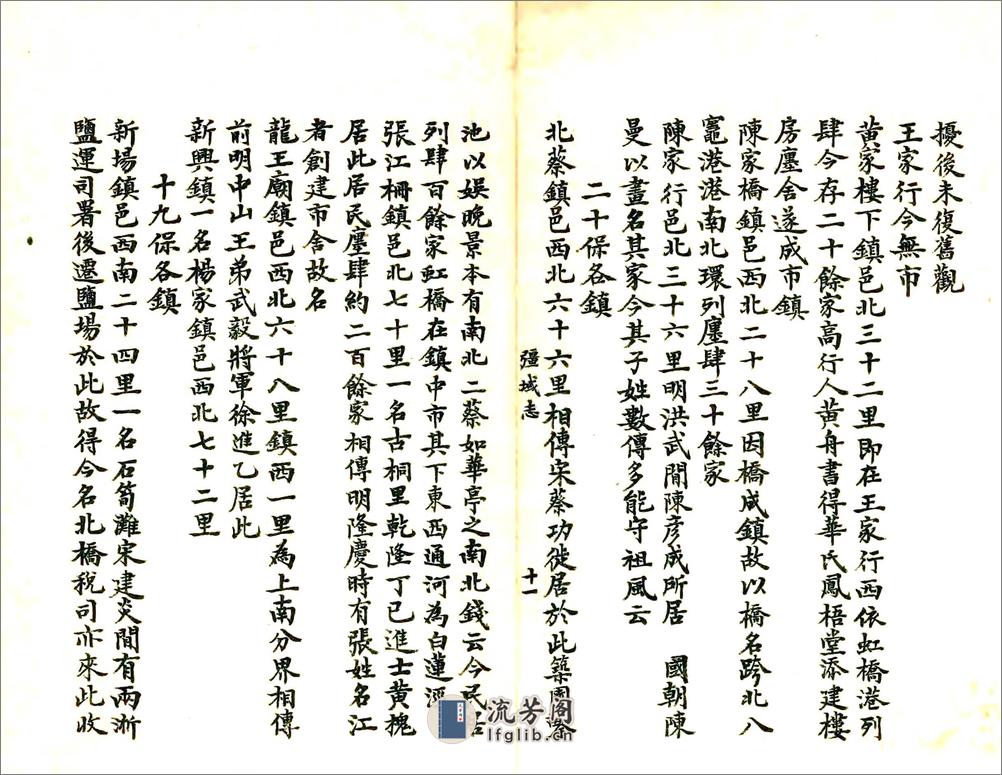 擾後未復舊觀
王家行今無市
黃家樓下鎮邑北三十二里即在王家行西依虹橋港列
肆今存二十餘家高行人黃舟書得華氏鳳梧堂添建樓
房廛舍遂成市鎮
陳家橋鎮邑西北二十八里因橋成鎮故以橋名跨北八
竈港港南北環列廛肆三十餘家
陳家行邑北三十六里明洪武間陳彥成所居 國朝陳
曼以畫名其家今其子姓數傳多能守祖風云
二十保各鎮
北蔡鎮邑西北六十六里相傳宋蔡功徙居於此築園鑿
疆域志
十一
池以娛晚景本有南北二蔡如華亭之南北錢云今民居
列肆百餘家虹橋在鎮中市其下東西通河為白蓮涇
張江柵鎮邑北七十里一名古桐里乾隆丁巳進士黃槐
居此居民廛肆約二百餘家相傳明隆慶時有張姓名江
者創建市舍故名
龍王廟鎮邑西北六十八里鎮西一里為上南分界相傳
前明中山王弟武毅將軍徐進乙居此
新興鎮一名楊家鎮邑西北七十二里
十九保各鎮
新場鎮邑西南二十四里一名石筍灘宋建炎間有兩浙
鹽運司署後遷鹽場於此故得今名北橋稅司亦來此收
流芳閣
lfglib.cn